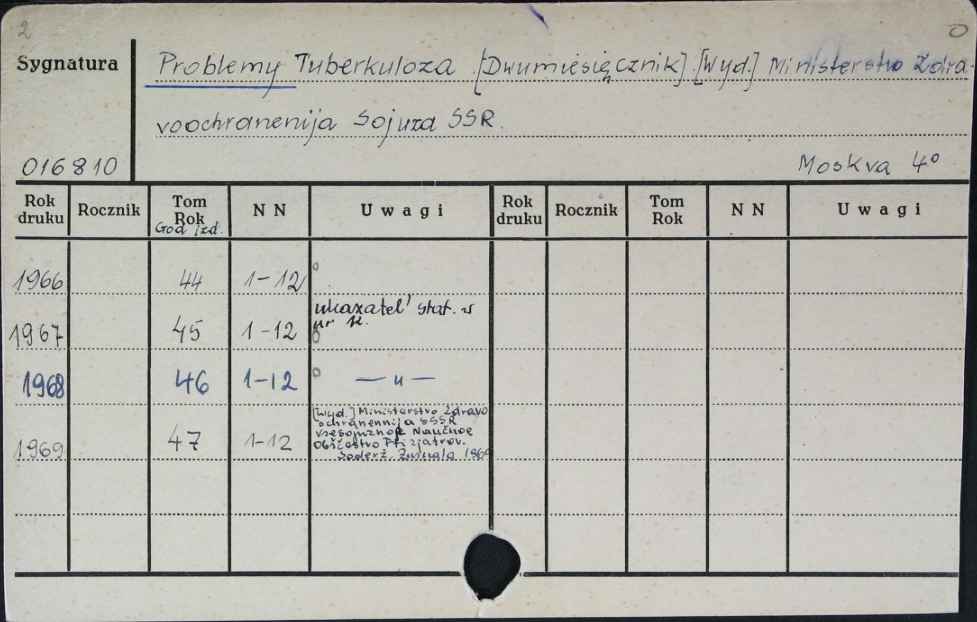 2
Sygnatura
Problemy Tuberkuloza [Dwumiesięcznik] [Wyd.] Ministerstvo Zdra-
voochranenija Sojuza SSR.
016810
Moskva 4°
Rok druku Rocznik Tom Rok God izd. N N Uwagi Rok druku Rocznik Tom Rok N N Uwagi
1966 44 1-12
1967 45 1-12 ukazatel' stat. v nr 12.
1968 46 1-12 — " —
1969 47 1-12 [Wyd.] Ministerstvo Zdravo
ochranennija SSSR
Vsesojuznoe Naučnoe
Obščestvo Ftiziatrov.
Soderž. Žurnala 1969